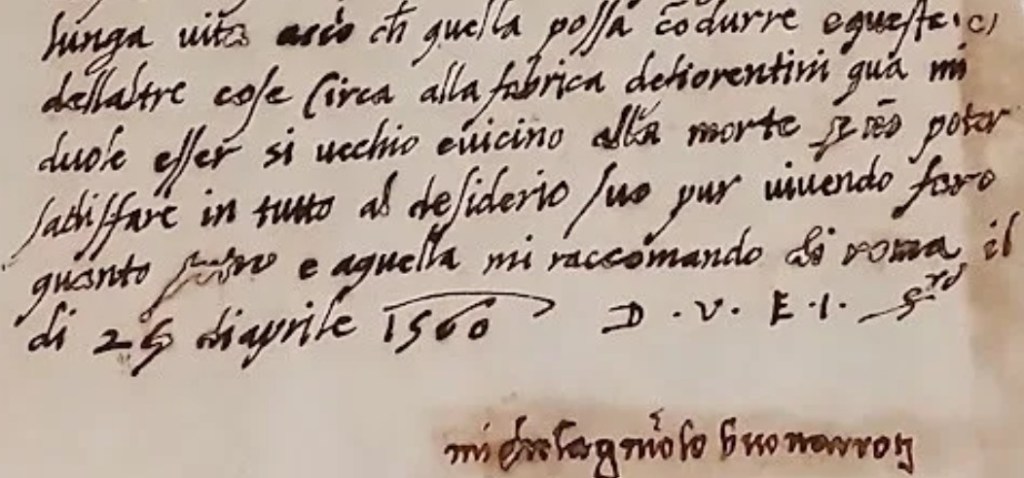 lunga vita acciò ch̃ quella possa cõdurre e queste e
dellaltre cose Circa alla fabrica de fiorentini qua mi
duole esser si vechio e vicino alla morte poter
sadisfare in tutto al desiderio suo pur vivendo farò
quanto e a quella mi raccomando di roma il
di 25 di aprile 1560 D . V . E . I . S.re
michelagniolo buonarroti